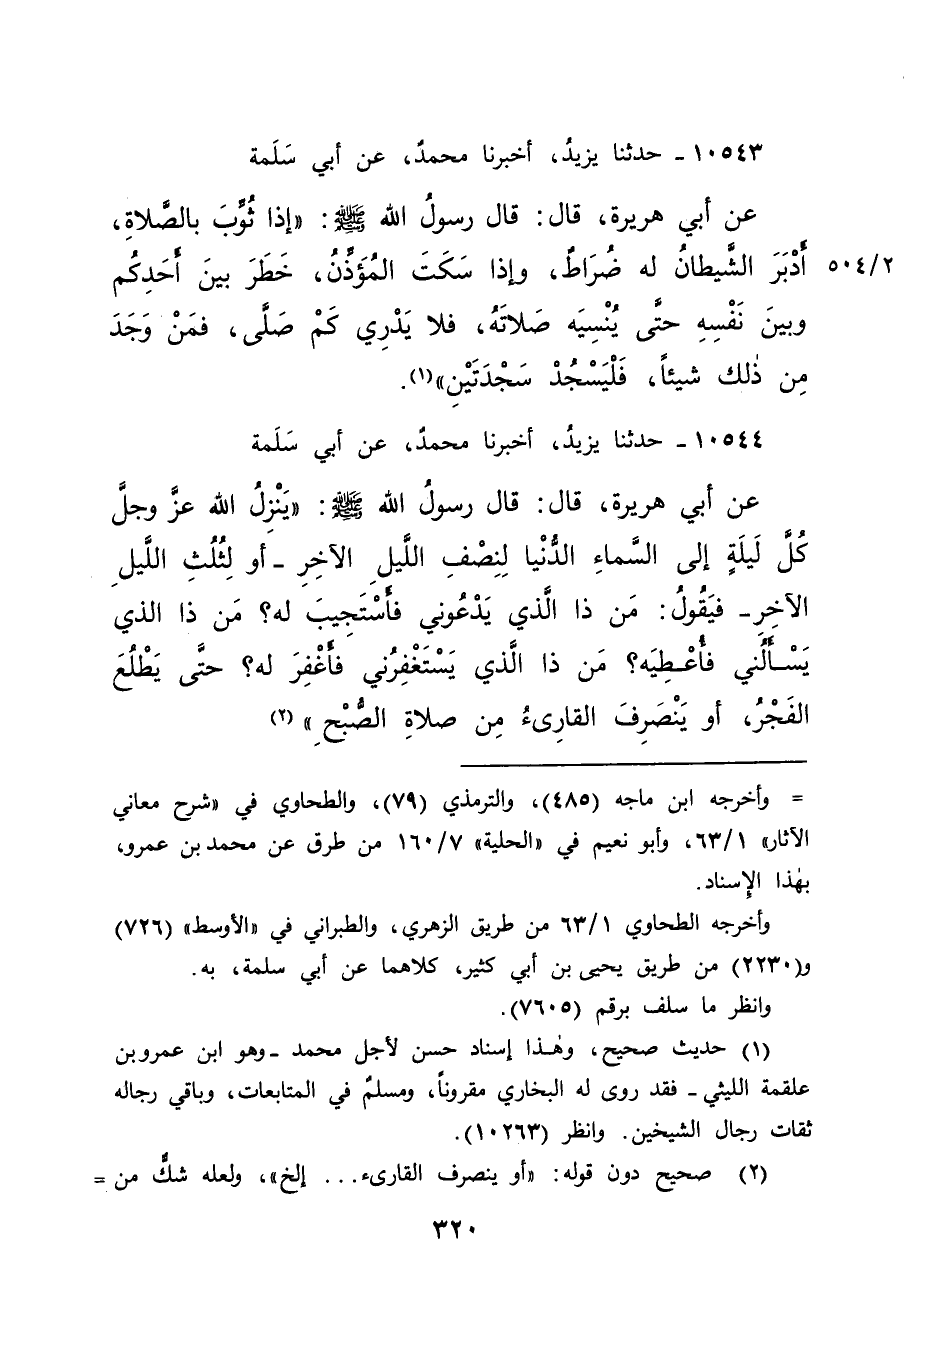 ١٠٥٤٣ ـ حدثنا يزيدُ، أخبرنا محمدٌ، عن أبي سَلَمة
عن أبي هريرة، قال: قال رسولُ الله ﷺ: «إذا ثُوِّبَ بالصَّلاةِ،
أَدْبَرَ الشَّيطانُ له ضُرَاطٌ، وإذا سَكَتَ المُؤَذِّنُ، خَطَرَ بينَ أَحَدِكُم ٥٠٤/٢
وبينَ نَفْسِهِ حتَّى يُنْسِيَه صَلاتَهُ، فلا يَدْرِي كَمْ صَلَّى، فمَنْ وَجَدَ
مِن ذٰلك شيئاً، فَلْيَسْجُدْ سَجْدَتَيْنِ»(١).
١٠٥٤٤ ـ حدثنا يزيدُ، أخبرنا محمدٌ، عن أبي سَلَمة
عن أبي هريرة، قال: قال رسولُ الله ﷺ: «يَنْزِلُ الله عزَّ وجلَّ
كُلَّ لَيلَةٍ إلى السَّماءِ الدُّنْيا لِنِصْفِ اللَّيلِ الآخِرِ ـ أو لِثُلُثِ اللَّيلِ
الآخِرِـ فيَقُولُ: مَن ذا الَّذي يَدْعُوني فأَسْتَجِيبَ له؟ مَن ذا الذي
يَسْأَلُني فأُعْطِيَه؟ مَن ذا الَّذي يَسْتَغْفِرُني فأَغْفِرَ له؟ حتَّى يَطْلُعَ
الفَجْرُ، أو يَنْصَرِفَ القارِىءُ مِن صلاةِ الصُّبْحِ» (٢)
= وأخرجه ابن ماجه (٤٨٥)، والترمذي (٧٩)، والطحاوي في «شرح معاني
الآثار» ٦٣/١، وأبو نعيم في «الحلية» ١٦٠/٧ من طرق عن محمد بن عمرو،
بهٰذا الإِسناد.
وأخرجه الطحاوي ٦٣/١ من طريق الزهري، والطبراني في «الأوسط» (٧٢٦)
و(٢٢٣٠) من طريق يحيى بن أبي كثير، كلاهما عن أبي سلمة، به.
وانظر ما سلف برقم (٧٦٠٥).
(١) حديث صحيح، وهٰذا إسناد حسن لأجل محمد ـ وهو ابن عمرو بن
علقمة الليثي ـ فقد روى له البخاري مقروناً، ومسلمٌ في المتابعات، وباقي رجاله
ثقات رجال الشيخين. وانظر (١٠٢٦٣).
(٢) صحيح دون قوله: «أو ينصرف القارىء... إلخ»، ولعله شكٌّ من =
٣٢٠